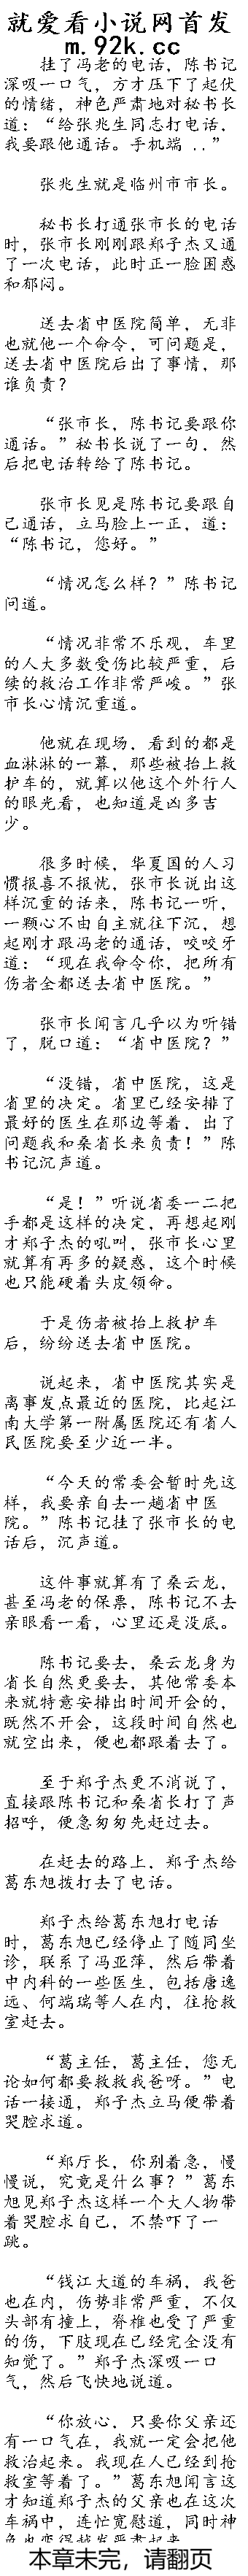 就爱看小说网首发
m.92k.cc
挂了冯老的电话，陈书记
深吸一口气，方才压下了起伏
的情绪，神色严肃地对秘书长
道：“给张兆生同志打电话，
我要跟他通话。手机端 ..”
张兆生就是临州市市长。
秘书长打通张市长的电话
时，张市长刚刚跟郑子杰又通
了一次电话，此时正一脸困惑
和郁闷。
送去省中医院简单，无非
也就他一个命令，可问题是，
送去省中医院后出了事情，那
谁负责？
“张市长，陈书记要跟你
通话。”秘书长说了一句，然
后把电话转给了陈书记。
张市长见是陈书记要跟自
己通话，立马脸上一正，道：
“陈书记，您好。”
“情况怎么样？”陈书记
问道。
“情况非常不乐观，车里
的人大多数受伤比较严重，后
续的救治工作非常严峻。”张
市长心情沉重道。
他就在现场，看到的都是
血淋淋的一幕，那些被抬上救
护车的，就算以他这个外行人
的眼光看，也知道是凶多吉
少。
很多时候，华夏国的人习
惯报喜不报忧，张市长说出这
样沉重的话来，陈书记一听，
一颗心不由自主就往下沉，想
起刚才跟冯老的通话，咬咬牙
道：“现在我命令你，把所有
伤者全都送去省中医院。”
张市长闻言几乎以为听错
了，脱口道：“省中医院？”
“没错，省中医院，这是
省里的决定。省里已经安排了
最好的医生在那边等着，出了
问题我和桑省长来负责！”陈
书记沉声道。
“是！”听说省委一二把
手都是这样的决定，再想起刚
才郑子杰的吼叫，张市长心里
就算有再多的疑惑，这个时候
也只能硬着头皮领命。
于是伤者被抬上救护车
后，纷纷送去省中医院。
说起来，省中医院其实是
离事发点最近的医院，比起江
南大学第一附属医院还有省人
民医院要至少近一半。
“今天的常委会暂时先这
样，我要亲自去一趟省中医
院。”陈书记挂了张市长的电
话后，沉声道。
这件事就算有了桑云龙，
甚至冯老的保票，陈书记不去
亲眼看一看，心里还是没底。
陈书记要去，桑云龙身为
省长自然更要去，其他常委本
来就特意安排出时间开会的，
既然不开会，这段时间自然也
就空出来，便也都跟着去了。
至于郑子杰更不消说了，
直接跟陈书记和桑省长打了声
招呼，便急匆匆先赶过去。
在赶去的路上，郑子杰给
葛东旭拨打去了电话。
郑子杰给葛东旭打电话
时，葛东旭已经停止了随同坐
诊，联系了冯亚萍，然后带着
中内科的一些医生，包括唐逸
远、何端瑞等人在内，往抢救
室赶去。
“葛主任，葛主任，您无
论如何都要救救我爸呀。”电
话一接通，郑子杰立马便带着
哭腔求道。
“郑厅长，你别着急，慢
慢说，究竟是什么事？”葛东
旭见郑子杰这样一个大人物带
着哭腔求自己，不禁吓了一
跳。
“钱江大道的车祸，我爸
也在内，伤势非常严重，不仅
头部有撞上，脊椎也受了严重
的伤，下肢现在已经完全没有
知觉了。”郑子杰深吸一口
气，然后飞快地说道。
“你放心，只要你父亲还
有一口气在，我就一定会把他
救治起来。我现在人已经到抢
救室等着了。”葛东旭闻言这
才知道郑子杰的父亲也在这次
车祸中，连忙宽慰道，同时神
色也变得越发严肃起来
本章未完，请翻页